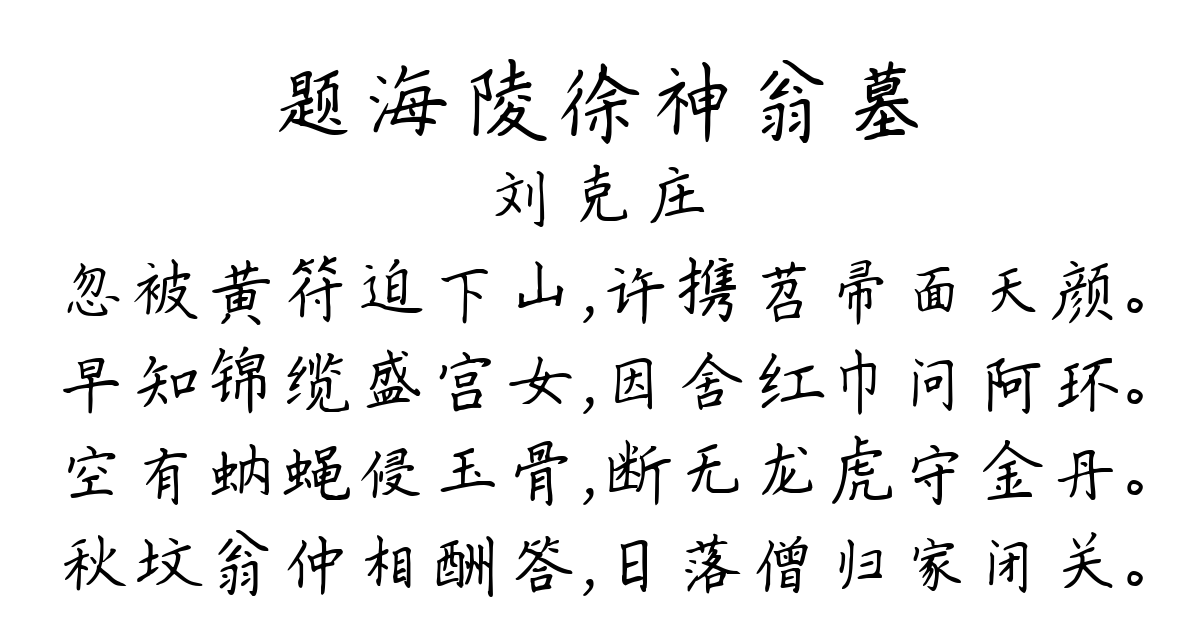 题海陵徐神翁墓
刘克庄
忽被黄符迫下山,许携苕帚面天颜。
早知锦缆盛宫女,因舍红巾问阿环。
空有蚋蝇侵玉骨,断无龙虎守金丹。
秋坟翁仲相酬答,日落僧归家闭关。